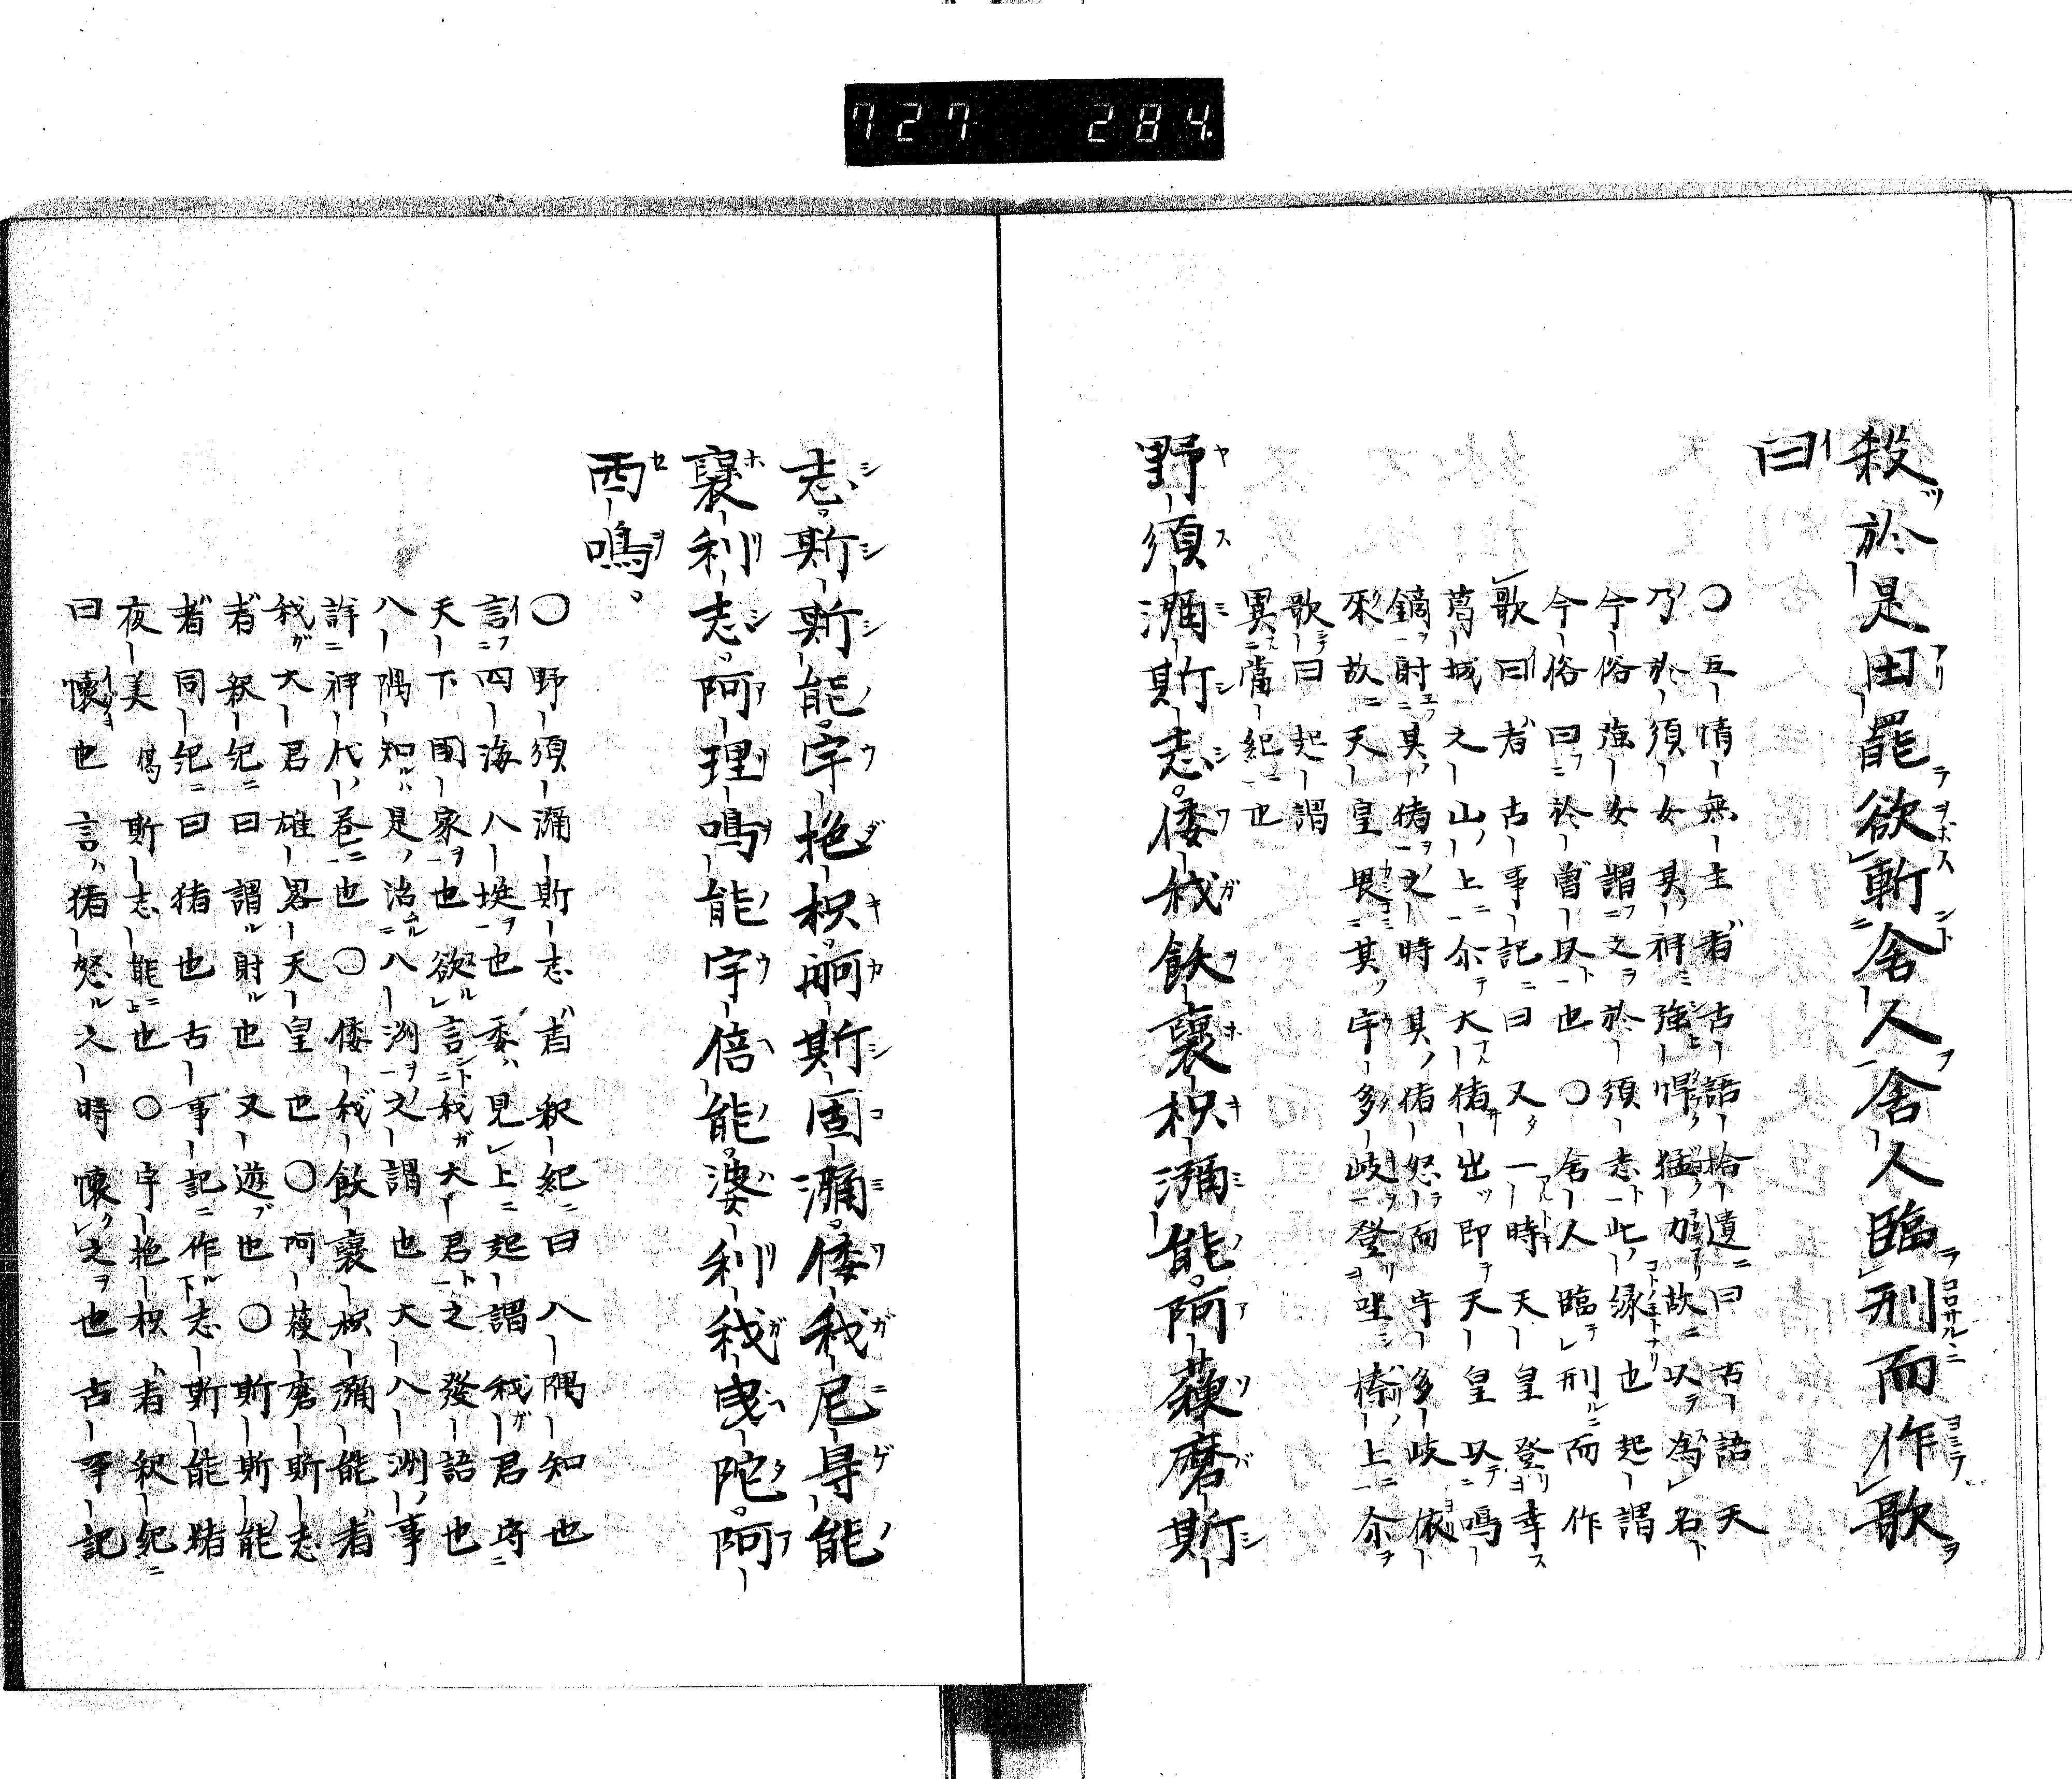 727 284
殺於是田罷欲斬舎人舎人臨刑而作歌
曰
○五情無主者古語拾遺曰古語天
乃於須女其神強悍猛力故以為名
今俗強女謂之於須志此縁也起謂
今俗曰於曽以也○舎人臨刑而作
歌曰者古事記曰又一時天皇登幸
葛城之山上尒大猪出即天皇以鳴
鏑射其猪之時其猪怒而宇多岐依
来故天皇畏其宇多岐登坐榛上尒
歌曰起謂
異當紀也
野須瀰斯志倭我飫裒枳瀰能阿蘓磨斯
志斯斯能宇拖枳舸斯固瀰倭我尼㝵能
裒利志阿理嗚能宇倍能婆利我曳陀阿
西嗚
○野須瀰斯志者釈紀曰八隅知也
言四海八埏也委見上起謂我君守
天下国家也欲言我大君之發語也
八隅知是治八洲之謂也大八洲事
詳神代巻也○倭我飫裒枳瀰能者
我大君雄畧天皇也○阿蘓磨斯志
者釈紀曰謂射也又遊也○斯斯能
者同紀曰猪也古事記作志斯能
夜美斯志能也○宇拖枳者釈紀
曰懐也言猪怒之時懐之也古事記